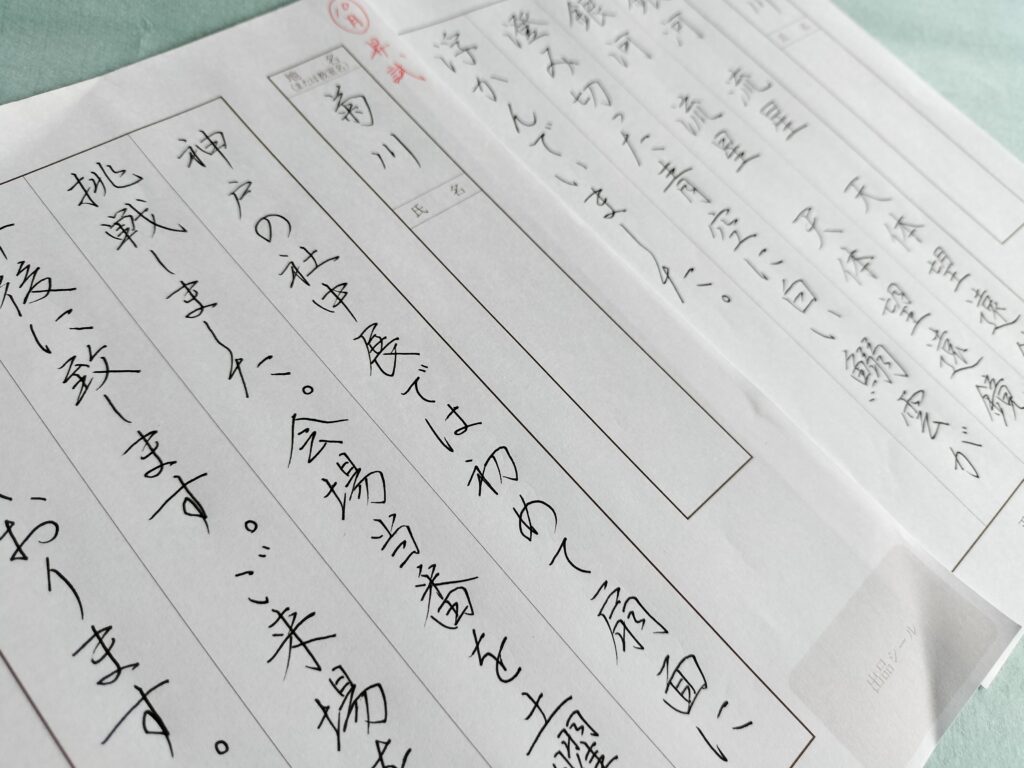 川
氏名
銀河 流星 天体望遠鏡
銀河 流星 天体望遠鏡
澄み切った青空に白い鰯雲が
浮かんでいました。
10月 昇試
地名
菊川
氏名
神戸の社中展では初めて扇面に
挑戦しました。会場当番を土曜
後に致します。ご来場を
おります。
出品シール